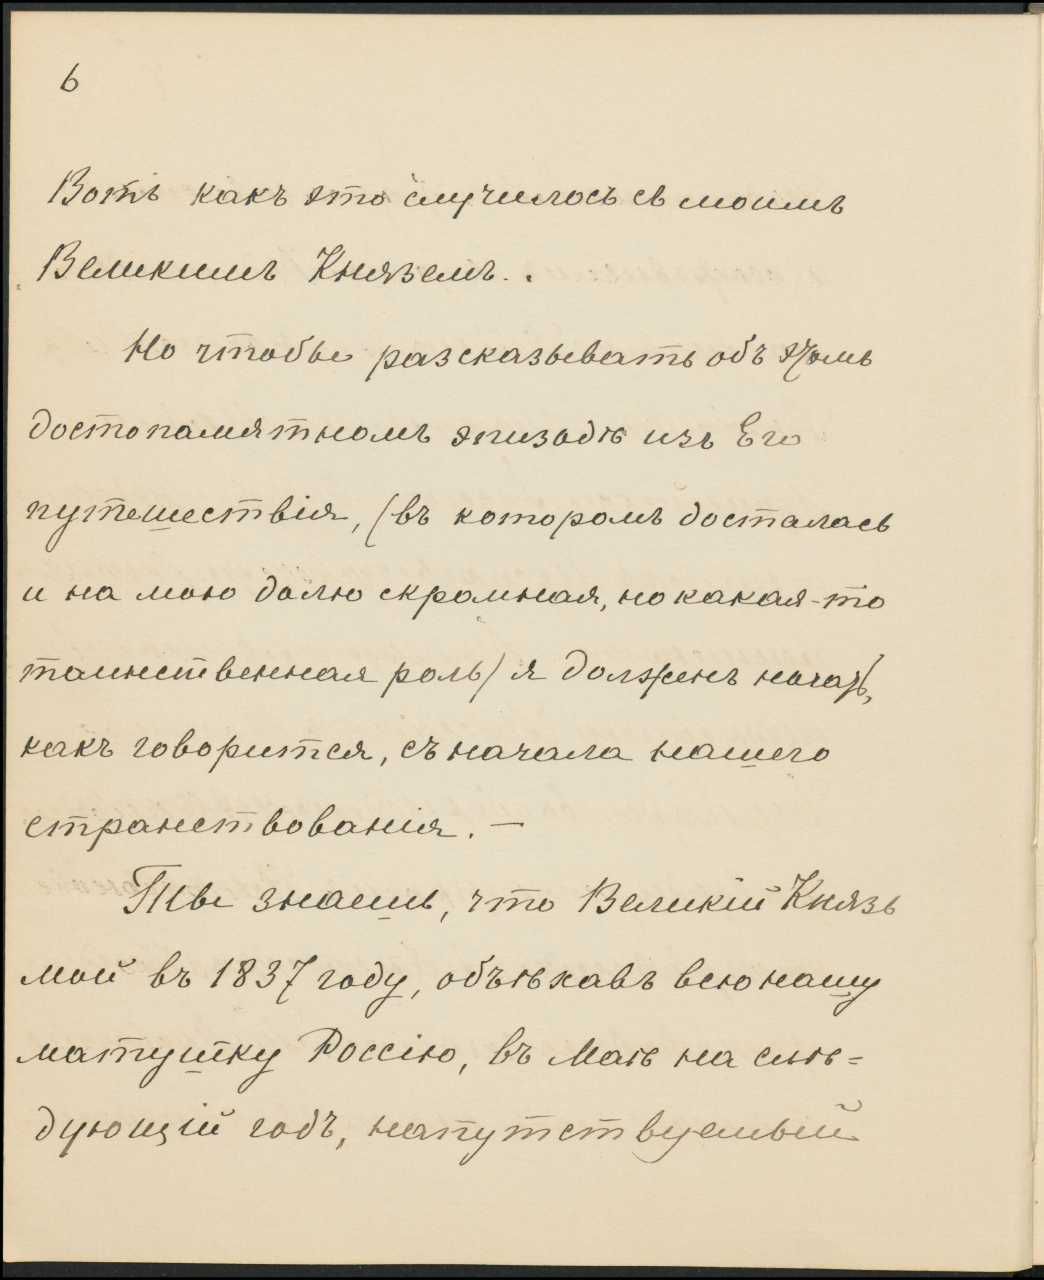 6
Вотъ какъ это случилось съ моимъ
Великимъ Княземъ.
Но чтобы разсказывать объ этомъ
достопамятномъ эпизодѣ изъ Его
путешествія, (въ которомъ досталась
и на мою долю скромная, но какая-то
таинственная роль) я долженъ начать,
какъ говорится, съ начала нашего
странствованія. —
Ты знаешь, что Великій Князь
мой въ 1837 году, объѣхавъ всю нашу
матушку Россію, въ Маѣ на слѣ=
дующій годъ, напутствуемый